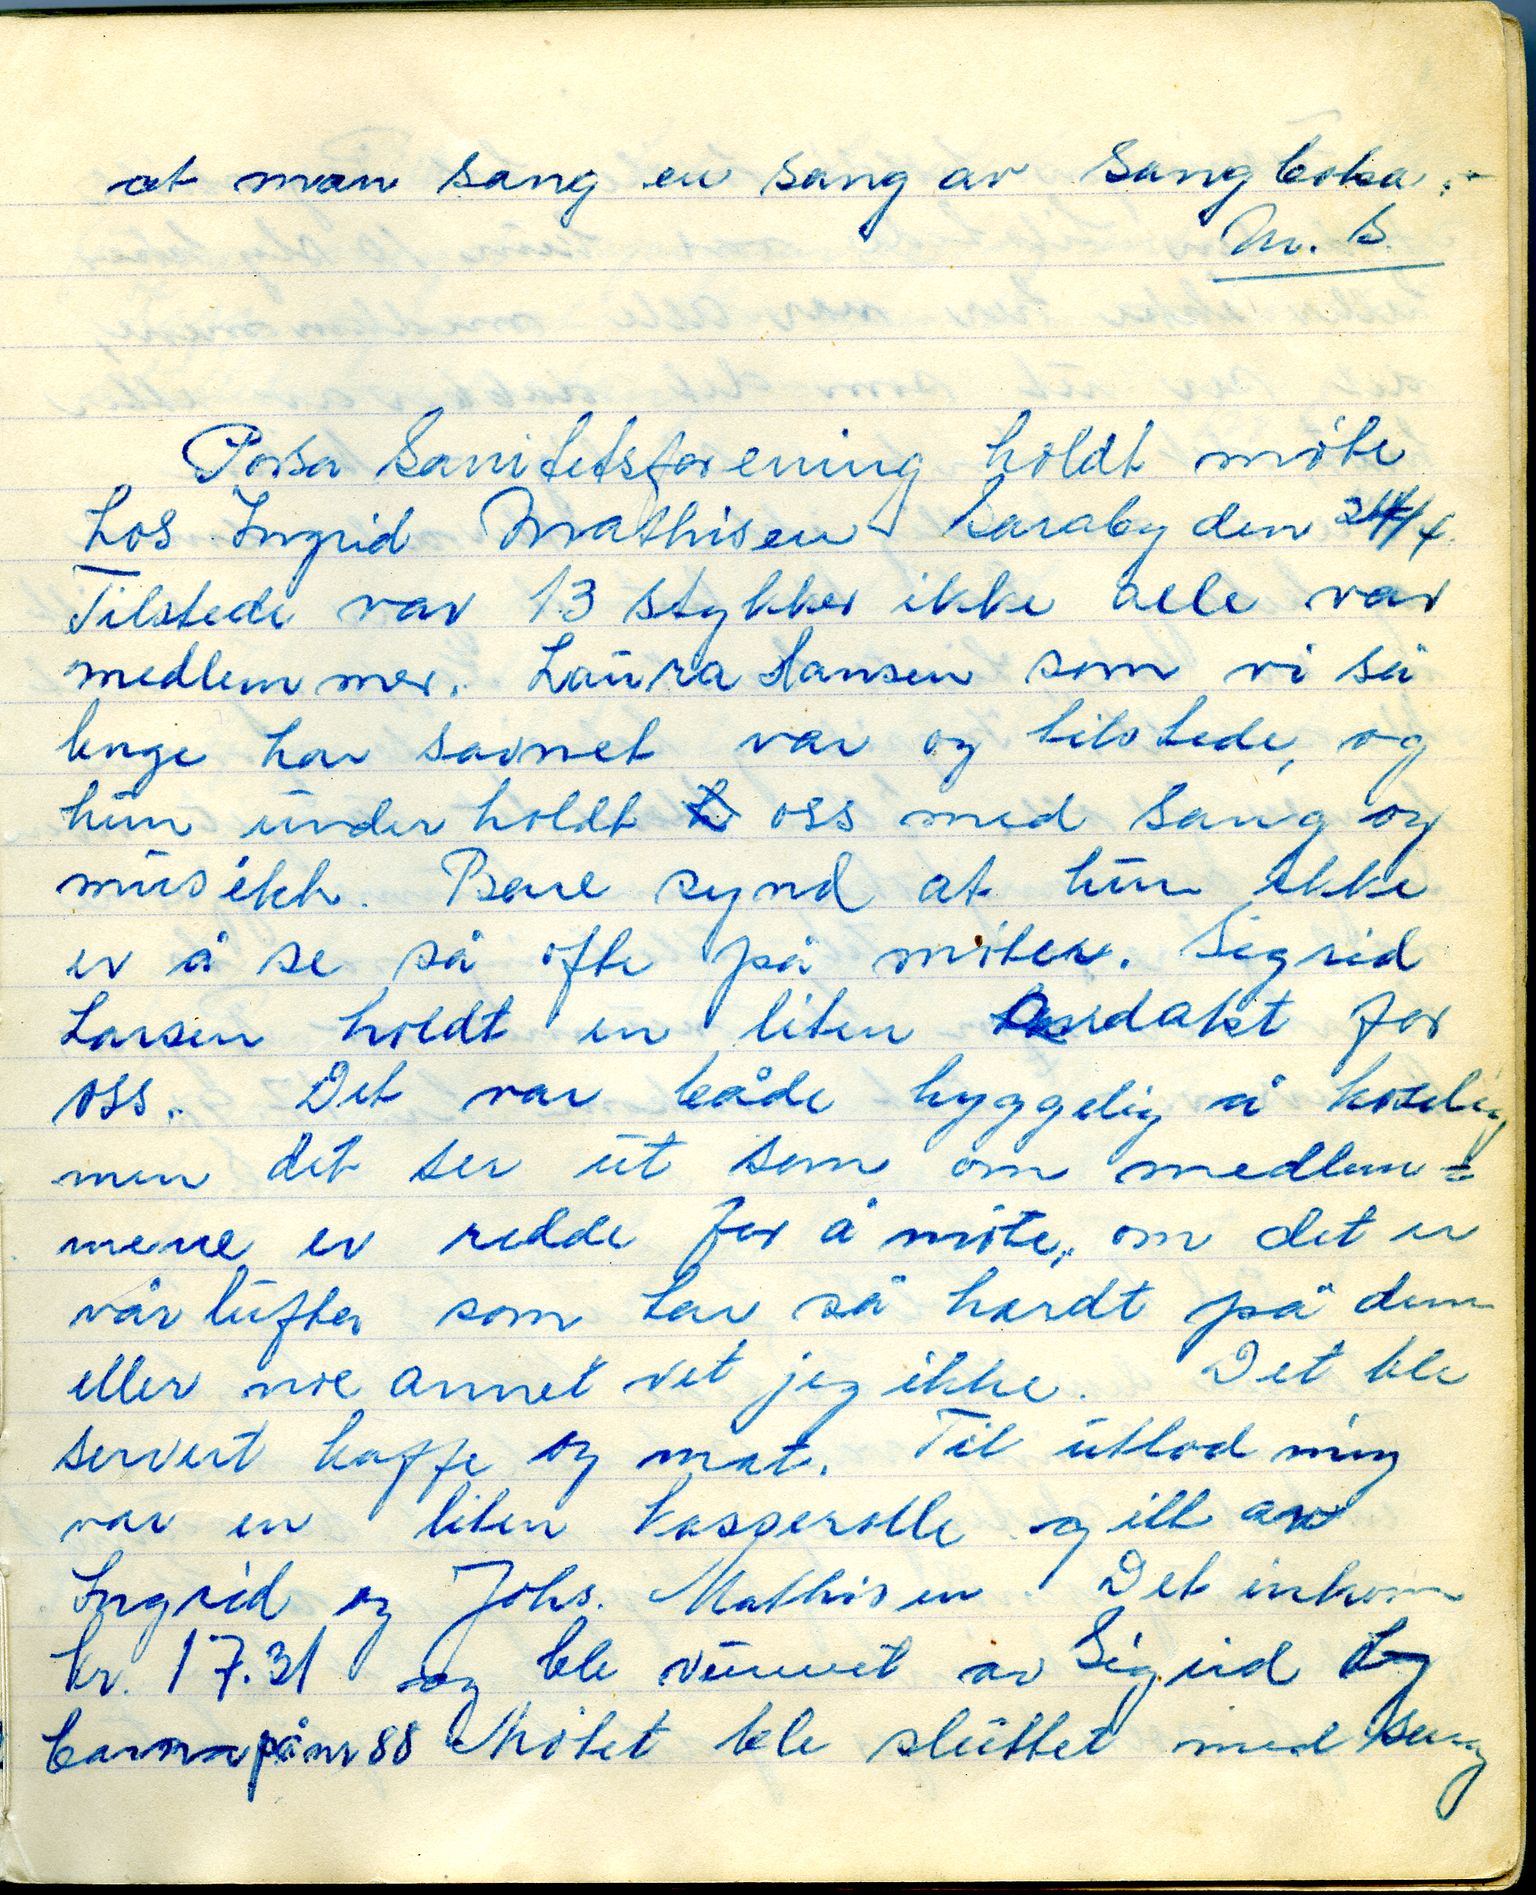 at man sang en sang av sangboka.
M. S.
Porsa Sanitetsforening holdt møte
hos Ingrid Mathisen Saraby den 24/4.
Tilstede var 13 stykker ikke alle var
medlemmer. Laura Hansen som vi så
lenge har savnet var og tilstede, og
hun underholdt oss med sang og
musikk. Bare synd at hun ikke
er å se så ofte på møter. Sigrid
Larsen holdt en liten andakt for
oss. Det var både hyggelig å koselig
men det ser ut som om medlem=
mene er redde for å møte, om det er
vårlufter som tar så hardt på dem
eller noe annet vet jeg ikke. Det ble
servert kaffe og mat. Til utlodning
var en liten kasserolle gitt av
Ingrid og Johs. Mathisen. Det innkom
kr. 17.31 og ble vunnet av Sigrid
på nr 88 Møtet ble sluttet med sang